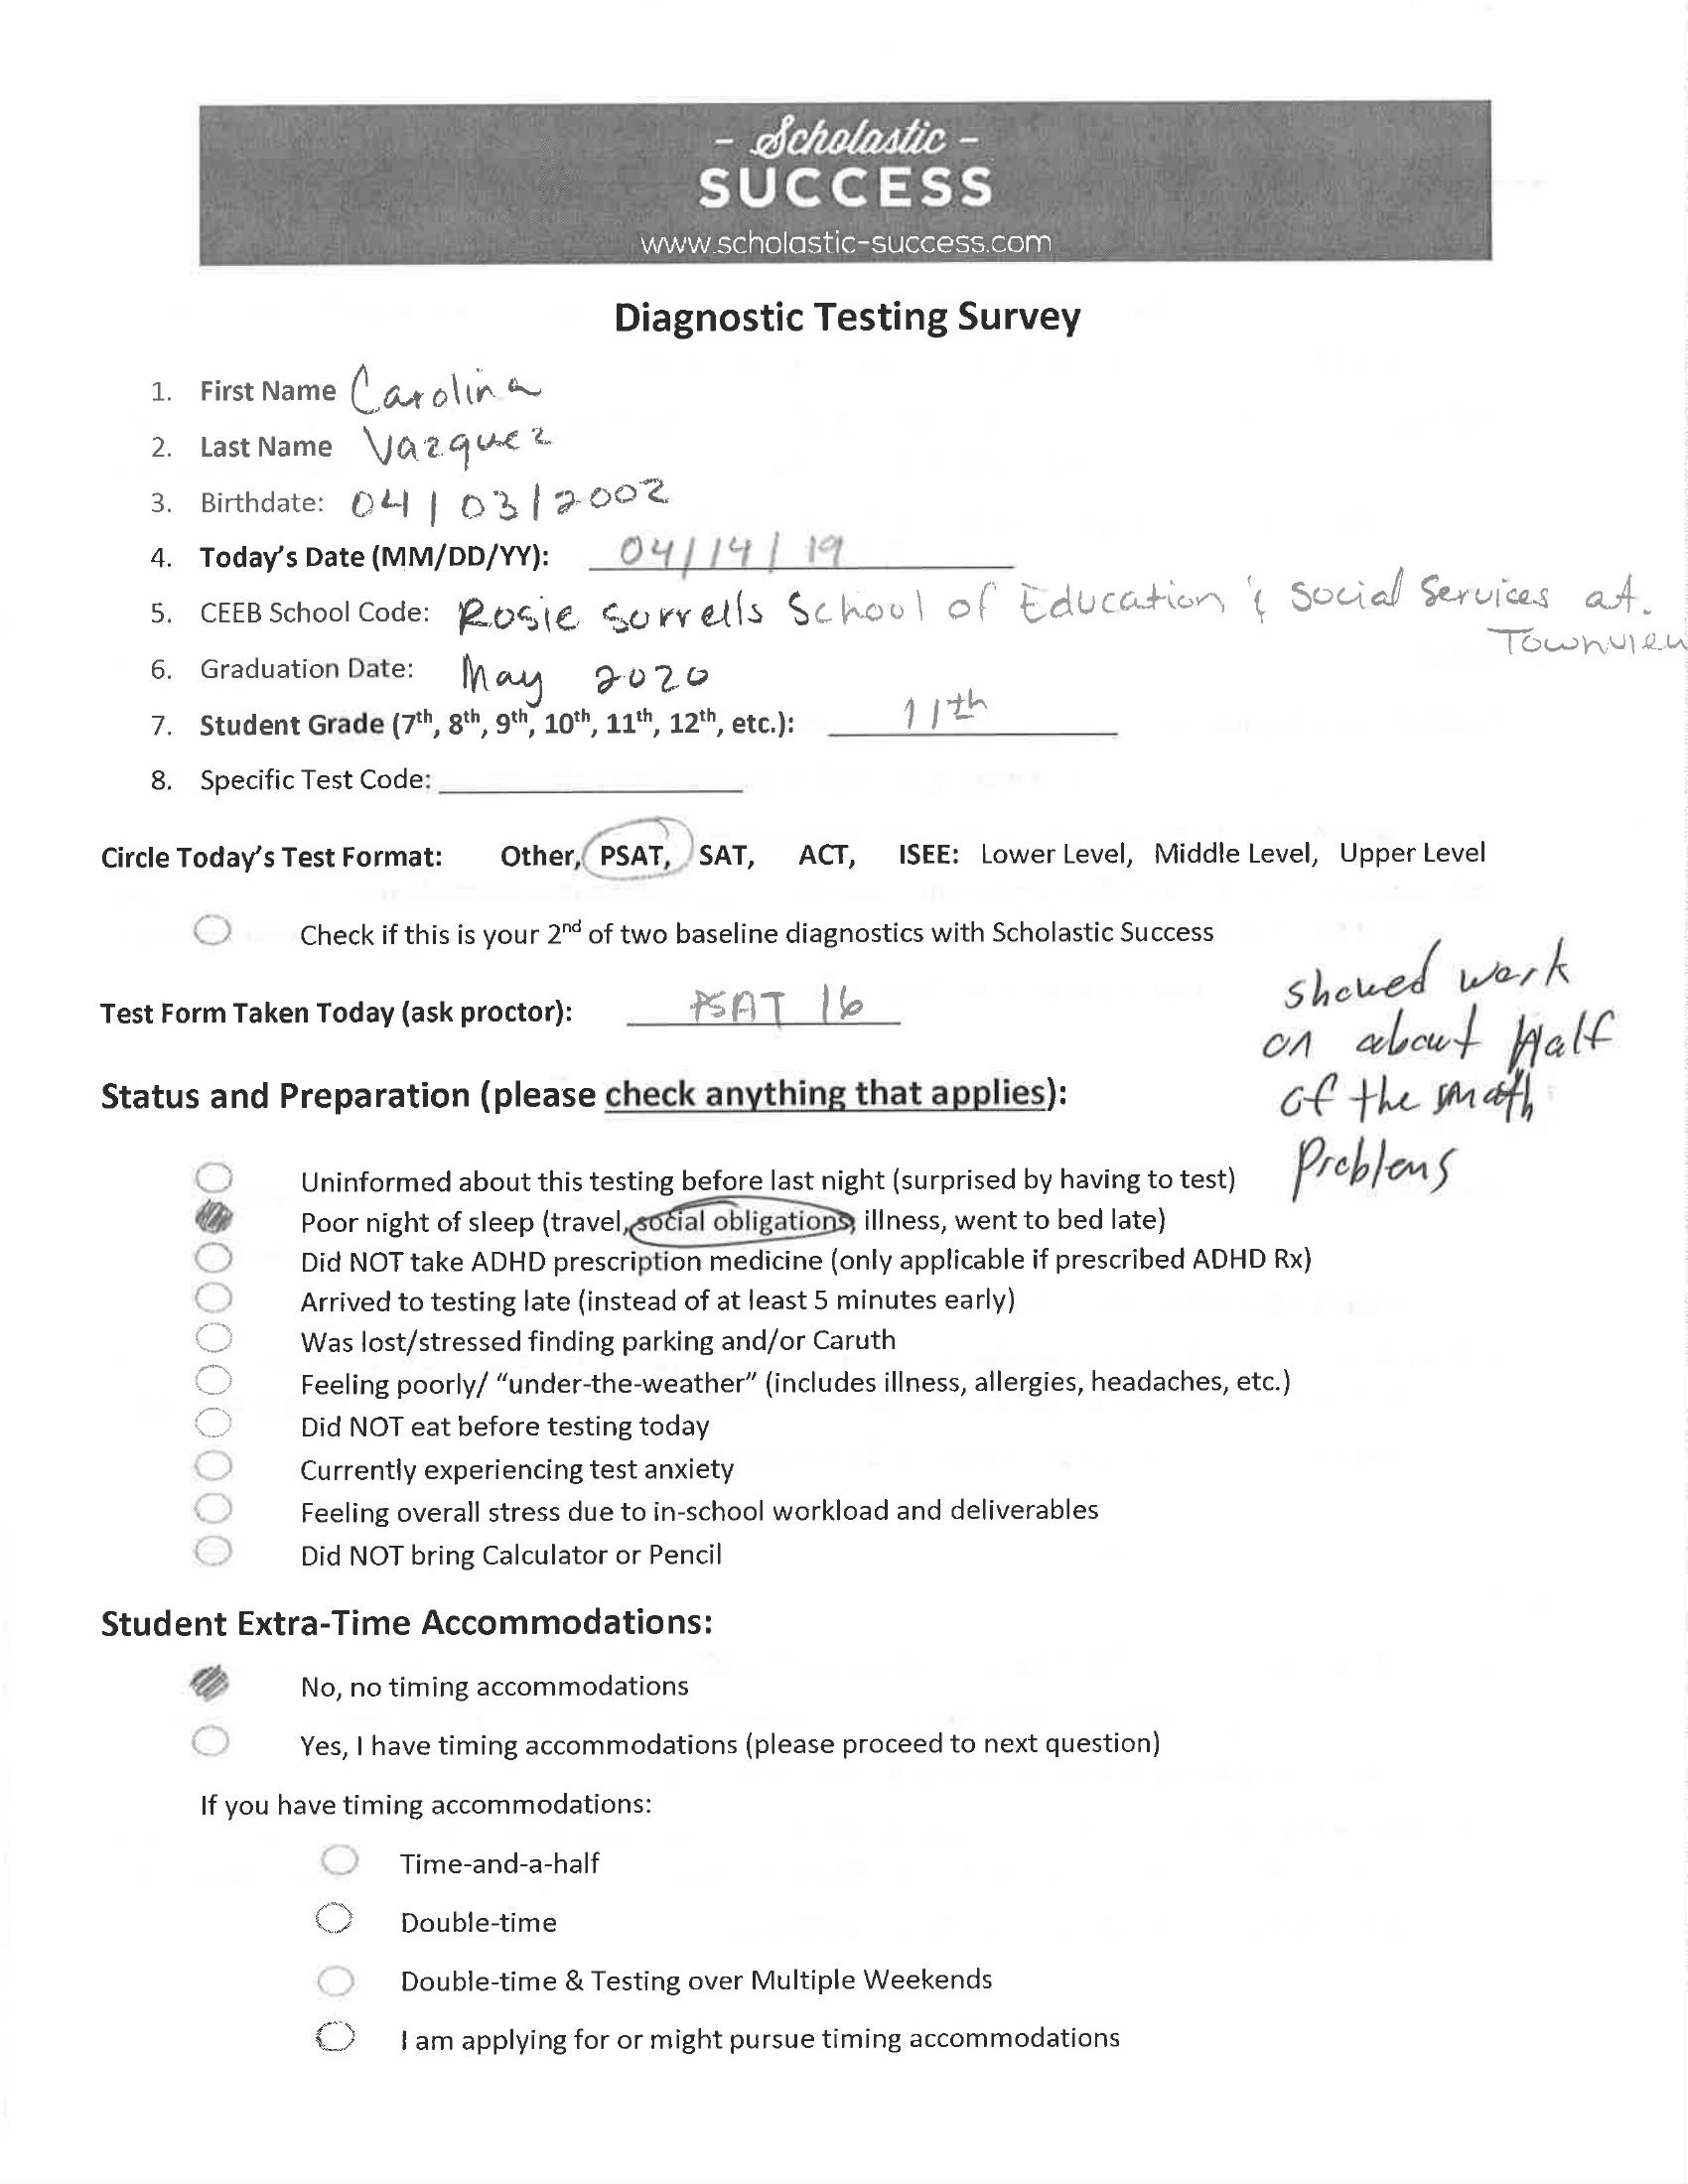 - Scholastic -
SUCCESS
www.scholastic-success.com
Diagnostic Testing Survey
1. First Name Carolina
2. Last Name Vazquez
3. Birthdate: 04|03|2002
4. Today's Date (MM/DD/YY): 04/14/19
5. CEEB School Code: Rosie Sorrells School of Education & Social Services at.
Townview
6. Graduation Date: May 2020
7. Student Grade (7th, 8th, 9th, 10th, 11th, 12th, etc.): 11th
8. Specific Test Code:
Circle Today's Test Format: Other, PSAT, SAT, ACT, ISEE: Lower Level, Middle Level, Upper Level
Check if this is your 2nd of two baseline diagnostics with Scholastic Success
Test Form Taken Today (ask proctor): PSAT 16
showed work
on about Half
of the math
Problems
Status and Preparation (please check anything that applies):
Uninformed about this testing before last night (surprised by having to test)
Poor night of sleep (travel, social obligations, illness, went to bed late)
Did NOT take ADHD prescription medicine (only applicable if prescribed ADHD Rx)
Arrived to testing late (instead of at least 5 minutes early)
Was lost/stressed finding parking and/or Caruth
Feeling poorly/ "under-the-weather" (includes illness, allergies, headaches, etc.)
Did NOT eat before testing today
Currently experiencing test anxiety
Feeling overall stress due to in-school workload and deliverables
Did NOT bring Calculator or Pencil
Student Extra-Time Accommodations:
No, no timing accommodations
Yes, I have timing accommodations (please proceed to next question)
If you have timing accommodations:
Time-and-a-half
Double-time
Double-time & Testing over Multiple Weekends
I am applying for or might pursue timing accommodations